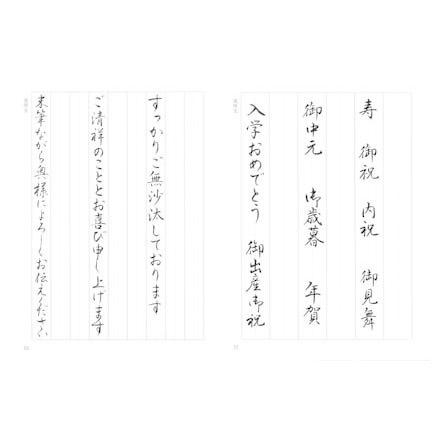 寿 御祝 内祝 御見舞
御中元 御歳暮 年賀
入学おめでとう 御出産御祝
すっかりご無沙汰しております
ご清祥のこととお喜び申し上げます
末筆ながら奥様によろしくお伝えください